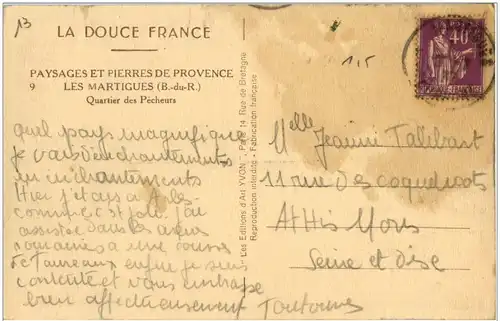 13
LA DOUCE FRANCE
PAYSAGES ET PIERRES DE PROVENCE
9 LES MARTIGUES (B.-du-R.)
Quartier des Pêcheurs
quel pays magnifique
je vais d'enchantements
en enchantements
Hier j'étais à Arles
comme c'est joli j'ai
assisté dans les arènes
romaines à une course
de taureaux enfin je suis
contente et vous embrasse
bien affectueusement
Les Editions d'Art YVON, Paris, 14, Rue de Bretagne
Reproduction interdite - Fabrication française
1,5
40c
POSTES FRANÇAISE
Melle Jeanne Tallibart
11 rue des coquelicots
Athis Mons
Seine et Oise